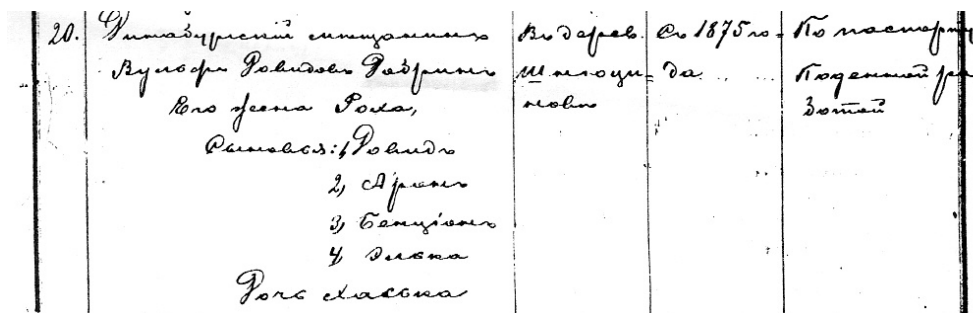 20. Динабургскiй мещанинъ
Вульфъ Довидовъ
Его жена Роха,
Сыновья: 1, Довидъ
2, Аронъ
3, Бенцiонъ
4, Элька
Дочь Хаська
Въ дерев.
Съ 1875 го-
да.
По паспорту
Поденной ра
ботой